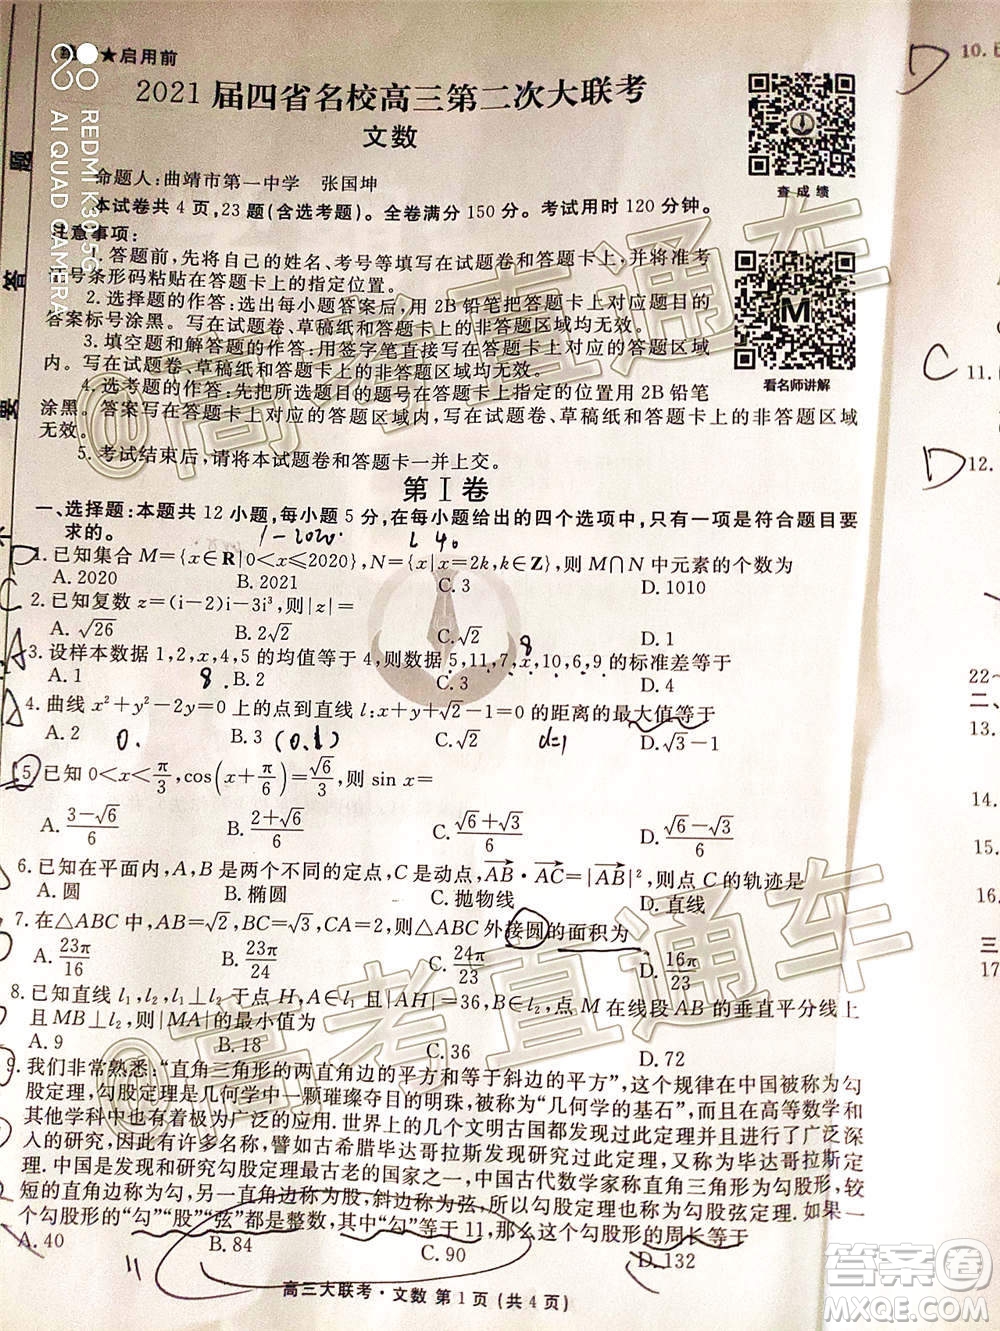 ★启用前
2021届四省名校高三第二次大联考
文数
命题人:曲靖市第一中学 张国坤
本试卷共4页,23题(含选考题)。全卷满分150分。考试用时120分钟。
注意事项:
1.答题前,先将自己的姓名、考号等填写在试题卷和答题卡上,并将准考
证号条形码粘贴在答题卡上的指定位置。
2.选择题的作答:选出每小题答案后,用2B铅笔把答题卡上对应题目的
答案标号涂黑。写在试题卷、草稿纸和答题卡上的非答题区域均无效。
3.填空题和解答题的作答:用签字笔直接写在答题卡上对应的答题区域
内。写在试题卷、草稿纸和答题卡上的非答题区域均无效。
4.选考题的作答:先把所选题目的题号在答题卡上指定的位置用2B铅笔
涂黑。答案写在答题卡上对应的答题区域内,写在试题卷、草稿纸和答题卡上的非答题区域
无效。
5.考试结束后,请将本试题卷和答题卡一并上交。
查成绩
看名师讲解
第Ⅰ卷
一、选择题:本题共12小题,每小题5分,在每小题给出的四个选项中,只有一项是符合题目要
求的。
1-2020.
1.已知集合M={x∈R|0<x≤2020},N={x|x=2k,k∈Z},则M∩N中元素的个数为
A. 2020 B. 2021 C. 3 D. 1010
2.已知复数z=(i-2)i-3i³,则|z|=
A. √26 B. 2√2 C. √2 D. 1
3.设样本数据1,2,x,4,5的均值等于4,则数据5,11,7,x,10,6,9的标准差等于
A. 1 B. 2 C. 3 D. 4
4.曲线x²+y²-2y=0上的点到直线l:x+y+√2-1=0的距离的最大值等于
A. 2 B. 3 C. √2 D. √3-1
(0.1) d=1
5.已知0<x<π/3,cos(x+π/6)=√6/3,则sin x=
A. (3-√6)/6 B. (2+√6)/6 C. (√6+√3)/6 D. (√6-√3)/6
6.已知在平面内,A,B是两个不同的定点,C是动点,AB·AC=|AB|²,则点C的轨迹是
A.圆 B.椭圆 C.抛物线 D.直线
7.在△ABC中,AB=√2,BC=√3,CA=2,则△ABC外接圆的面积为
A. 23π/16 B. 23π/24 C. 24π/23 D. 16π/23
8.已知直线l₁,l₂,l₁⊥l₂于点H,A∈l₁且|AH|=36,B∈l₂,点M在线段AB的垂直平分线上
且MB⊥l₂,则|MA|的最小值为
A. 9 B. 18 C. 36 D. 72
9.我们非常熟悉:“直角三角形的两直角边的平方和等于斜边的平方”,这个规律在中国被称为勾
股定理,勾股定理是几何学中一颗璀璨夺目的明珠,被称为“几何学的基石”,而且在高等数学和
其他学科中也有着极为广泛的应用.世界上的几个文明古国都发现过此定理并进行了广泛深
入的研究,因此有许多名称,譬如古希腊毕达哥拉斯发现此定理,西方因而称为毕达哥拉斯定
理.中国是发现和研究勾股定理最古老的国家之一,中国古代数学家称直角三角形为勾股形,较
短的直角边称为勾,另一直角边称为股,斜边称为弦,所以勾股定理也称为勾股弦定理.如果一
个勾股形的“勾”“股”“弦”都是整数,其中“勾”等于11,那么这个勾股形的周长等于
A. 40 B. 84 C. 90 D. 132
高三大联考·文数 第1页(共4页)
REDMI K30 5G
AI QUAD CAMERA
题
答
要
10.
11.
12.
22~
二、
13.
14.
15.
16.
三
17
D
C
D
@高考直通车
@高考直通车
答案卷
MXQE.COM